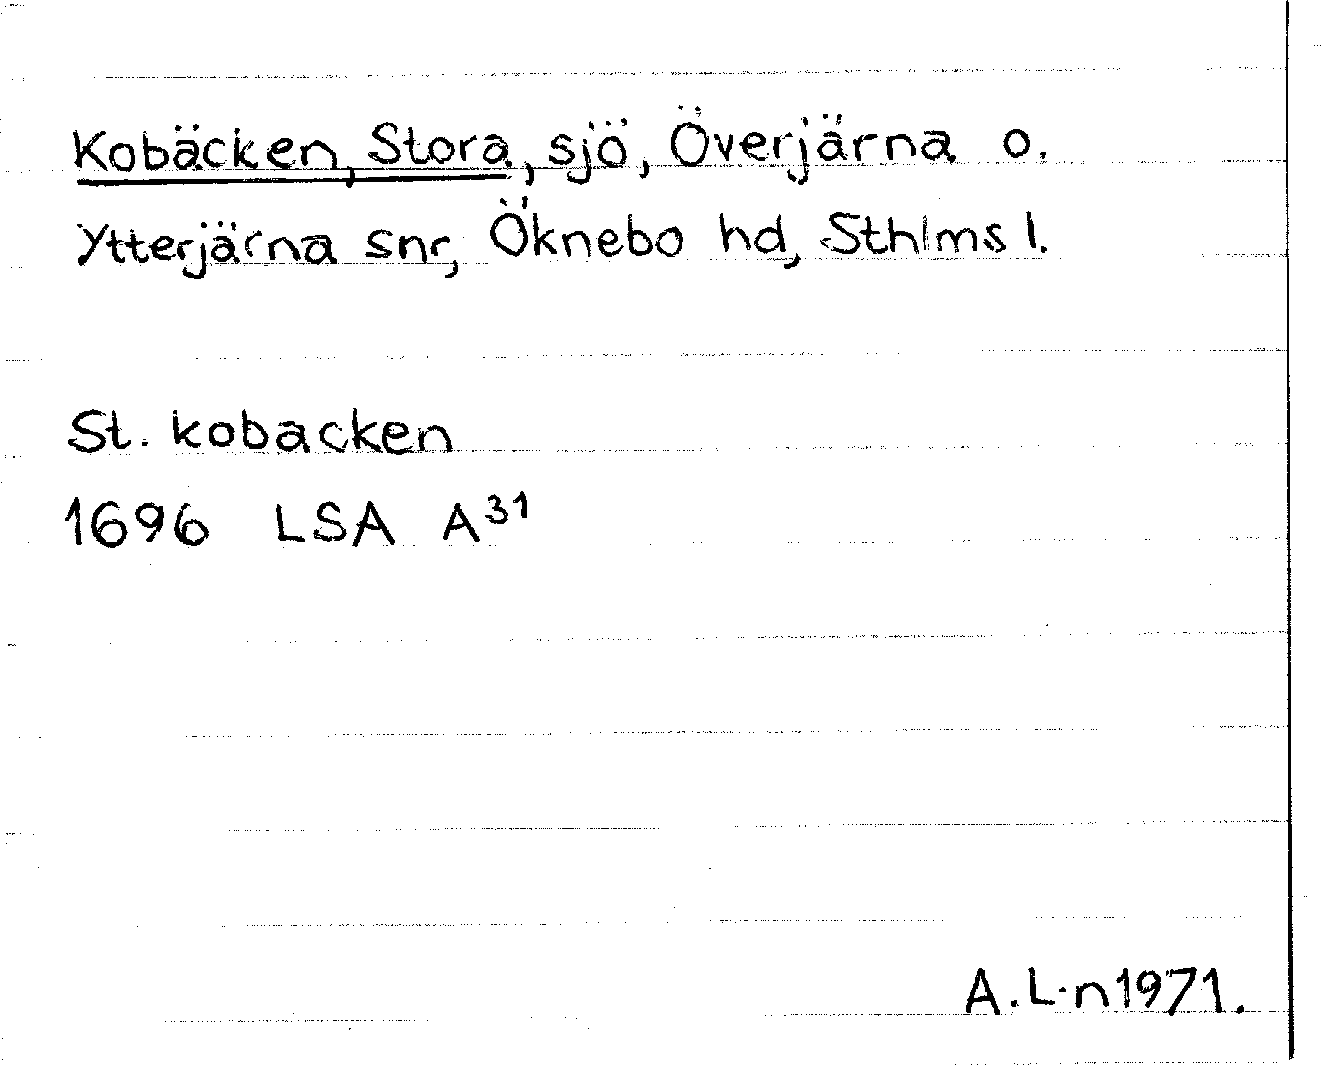 Kobäcken, Stora, sjö, Överjärna o.
Ytterjärna snr, Öknebo hd, Sthlms l.
St. kobacken
1696 LSA A³¹
A.L-n 1971.